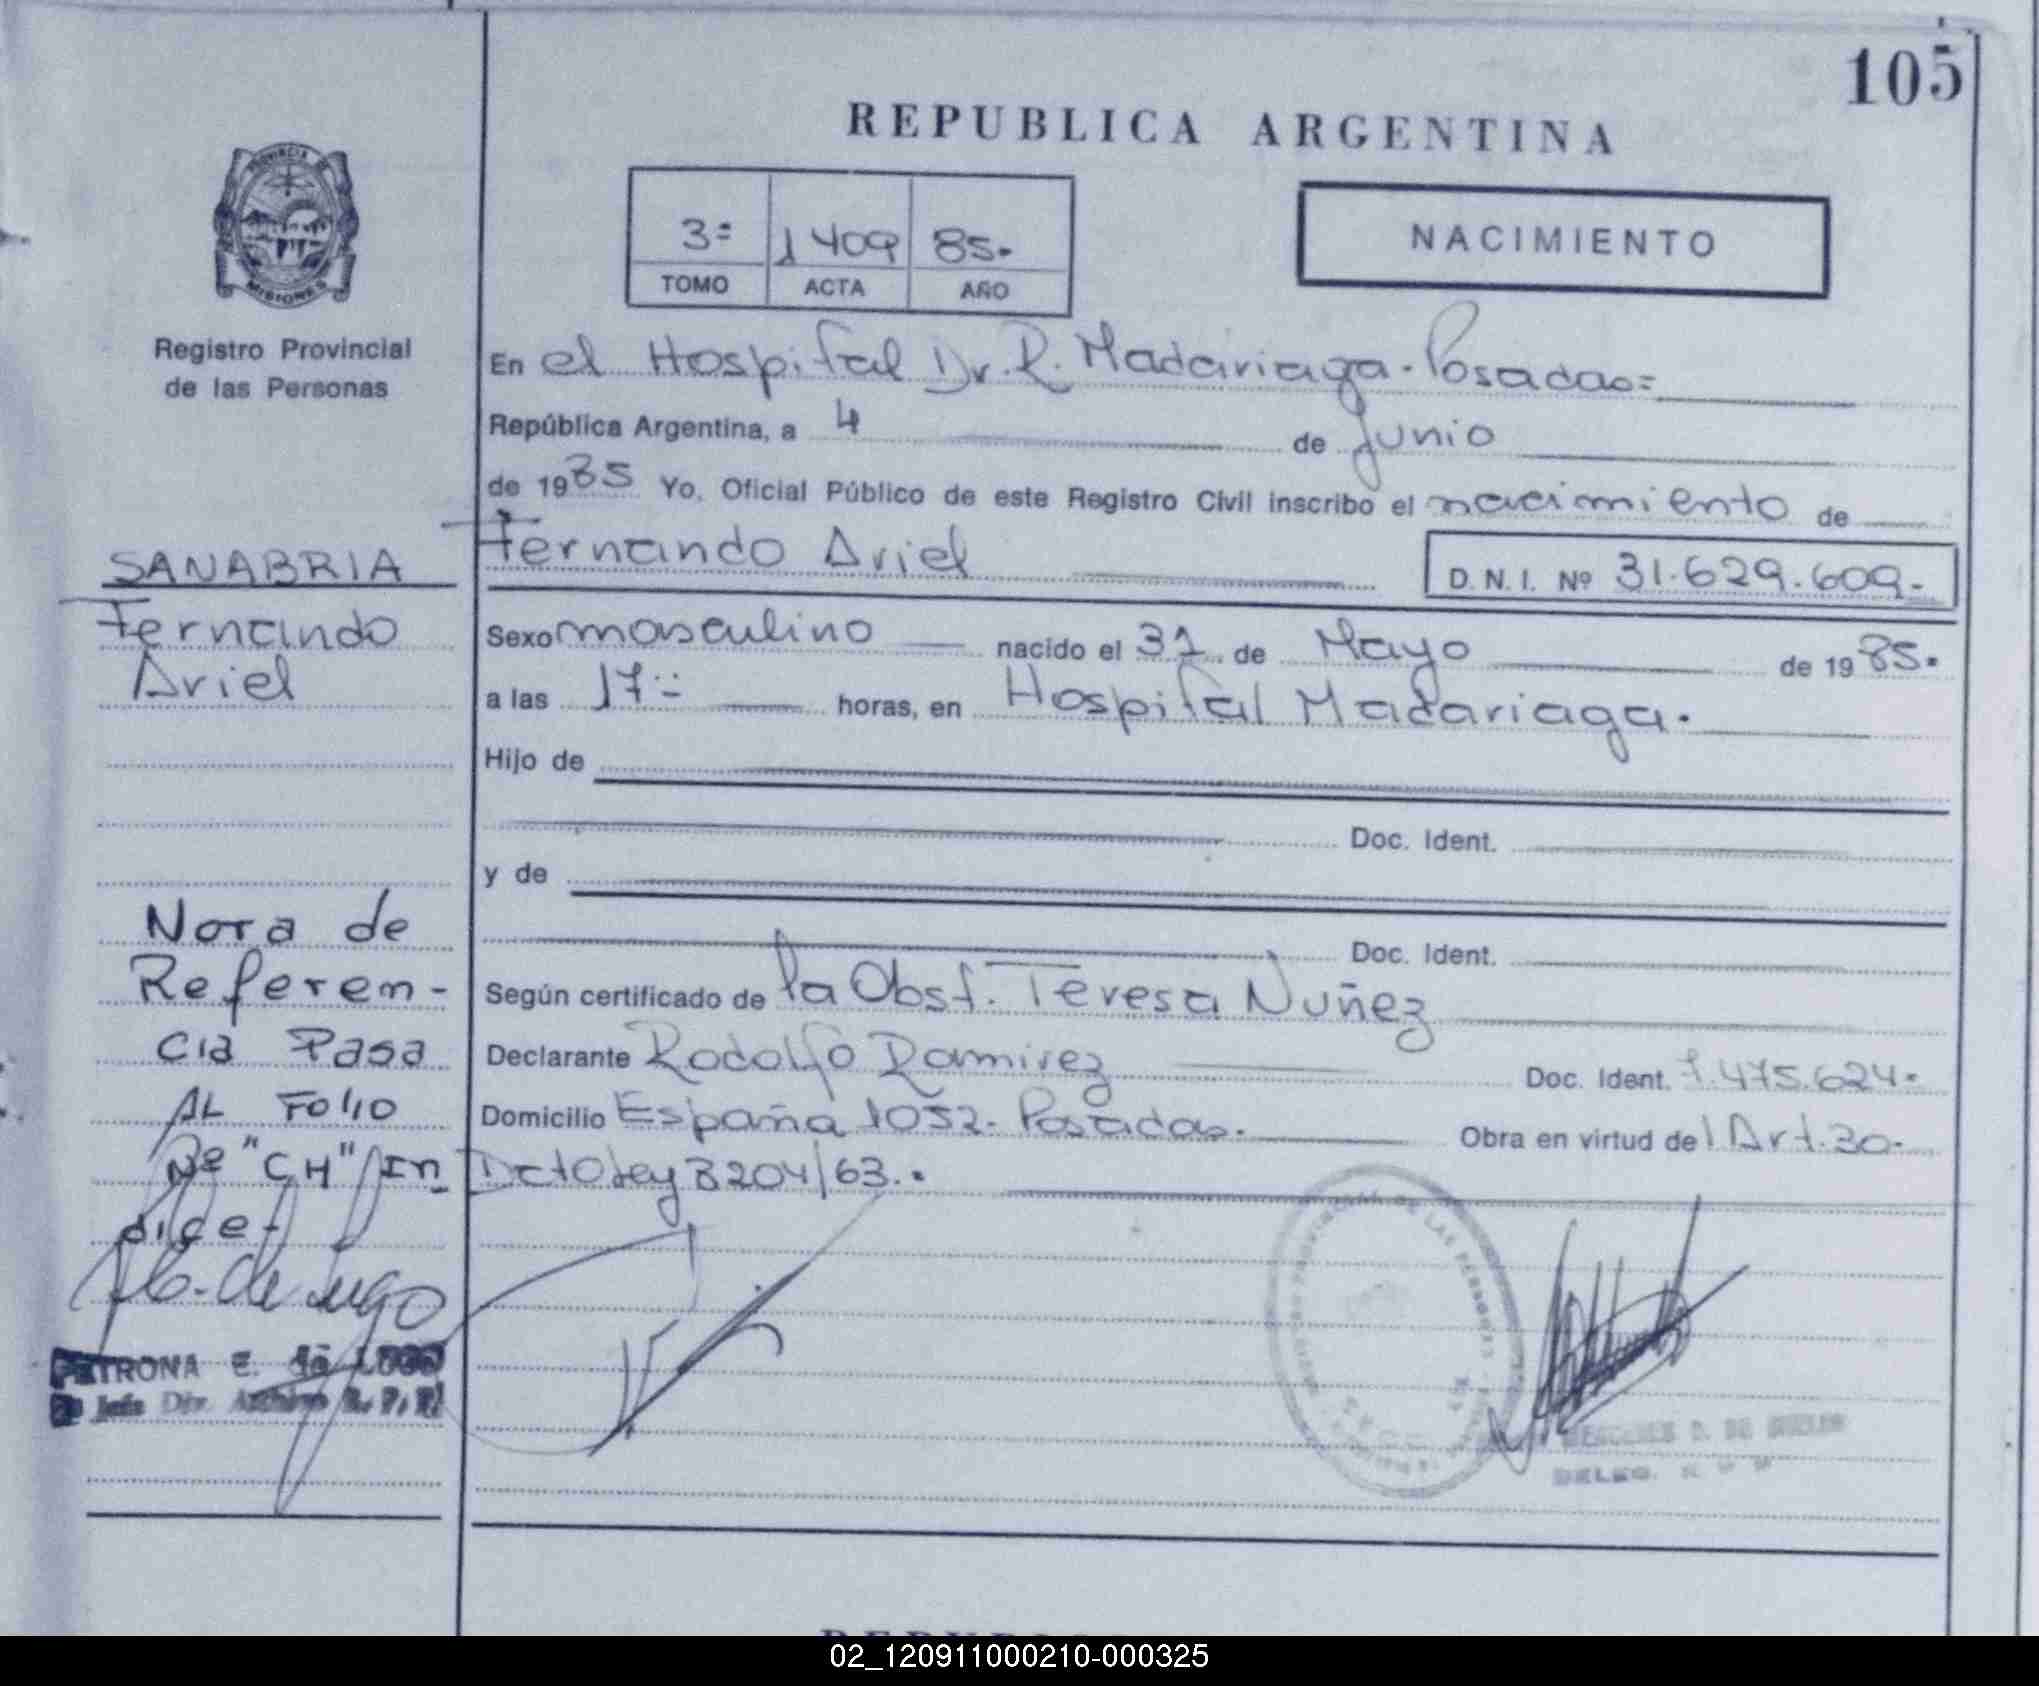 105
REPUBLICA ARGENTINA
PROVINCIA DE
MISIONES
Registro Provincial
de las Personas
3= 1409 85.-
TOMO ACTA AÑO
NACIMIENTO
En el Hospital Dr. R. Madariaga - Posadas=
República Argentina, a 4 de Junio
de 1985 Yo, Oficial Público de este Registro Civil inscribo el nacimiento de
Fernando Ariel D.N.I. Nº 31.629.609.-
Sexo masculino nacido el 31 de Mayo de 1985.
a las 17:- horas, en Hospital Madariaga.
Hijo de
Doc. Ident.
y de
Doc. Ident.
Según certificado de la Obst. Teresa Nuñez
Declarante Rodolfo Ramirez Doc. Ident. 7.475.624.
Domicilio España 1052- Posadas. Obra en virtud del Art. 30-
Dcto Ley 8204/63..
SANABRIA
Fernando
Ariel
Nota de
Referen-
cia Pasa
AL Folio
Nº "CH" In
dice-
PETRONA E. de LUGO
Jefa Div. Archivo R.P.P.
DELEG.
02_120911000210-000325